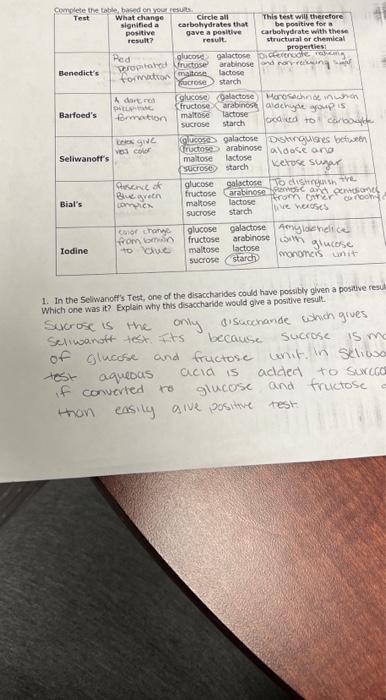 Complete the table, based on your results.
Test
What change signified a positive result?
Circle all carbohydrates that gave a positive result.
This test will therefore be positive for a carbohydrate with these structural or chemical properties:
Benedict's
Red
formation
glucose galactose
fructose arabinose
maltose lactose
sucrose starch
Differenciate reducing
and non-reducing sugar
Barfoed's
A dark red
formation
glucose galactose
fructose arabinose
maltose lactose
sucrose starch
in which
aldehyde group is
to carbon
Seliwanoff's
give
red color
glucose galactose
fructose arabinose
maltose lactose
sucrose starch
Distinguishes between
aldose and
ketose sugar
Bial's
of
Blue green
complex
glucose galactose
fructose arabinose
maltose lactose
sucrose starch
To distinguish the
pentose and
from other
like hexoses
Iodine
color change
from brown
to blue
glucose galactose
fructose arabinose
maltose lactose
sucrose starch
with glucose
monomers unit
1. In the Seliwanoff's Test, one of the disaccharides could have possibly given a positive resul
Which one was it? Explain why this disaccharide would give a positive result.
Sucrose is the only which gives
Seliwanoff test. Its because sucrose is m
of glucose and fructose unit. in
test aqueous acid is added to
if converted to glucose and fructose
than easily give positive test.